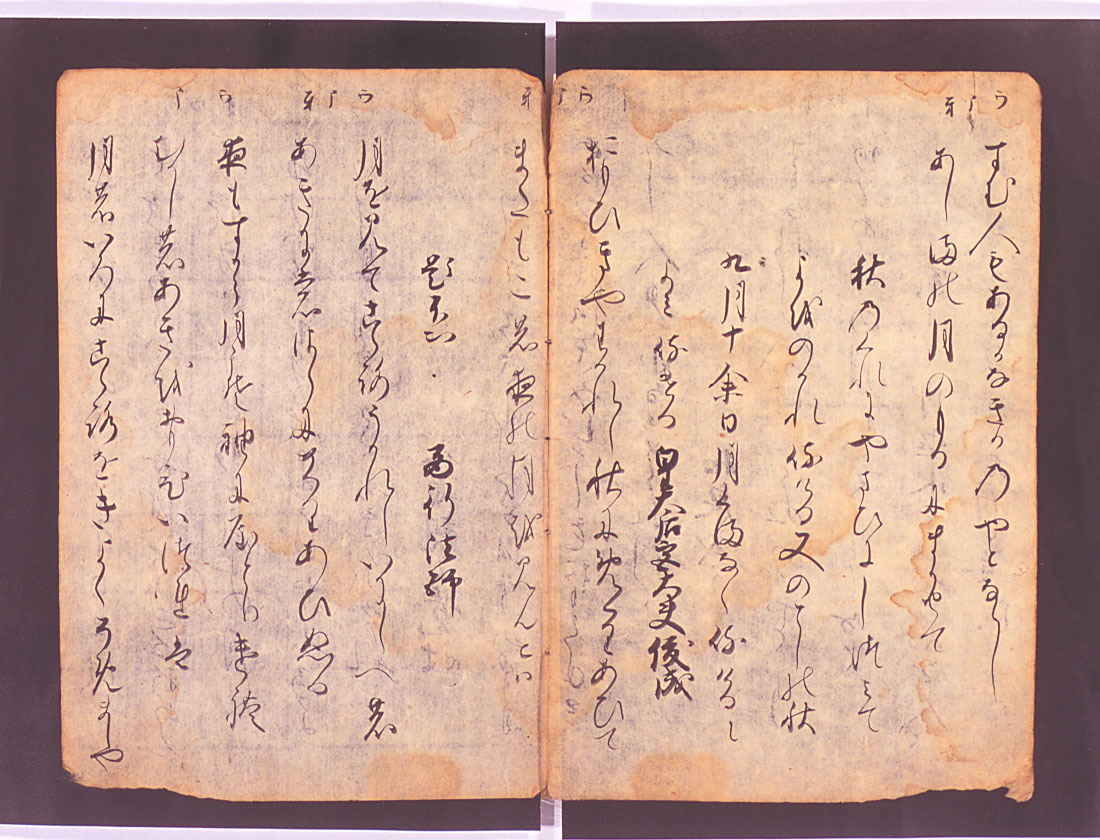 すむ人もあるかなきかのやとならし
あしまの月のもるにまかせて
秋のくれにやまひにしつみて
よをのかれ侍ける又のとしの秋
九月十余日月くまなく侍けるに
よみ侍ける 皇太后宮大夫俊成
おもひきやわかれし秋にめくりあひて
またもこの夜の月を見んとは
題不知 西行法師
月を見てこゝろうかれしいにしへの
あきにもさらにめくりあひぬる
夜もすから月こそ袖にやとりけれ
むかしのあきをおもひいつれは
月のいろにこゝろをきよくそめましや